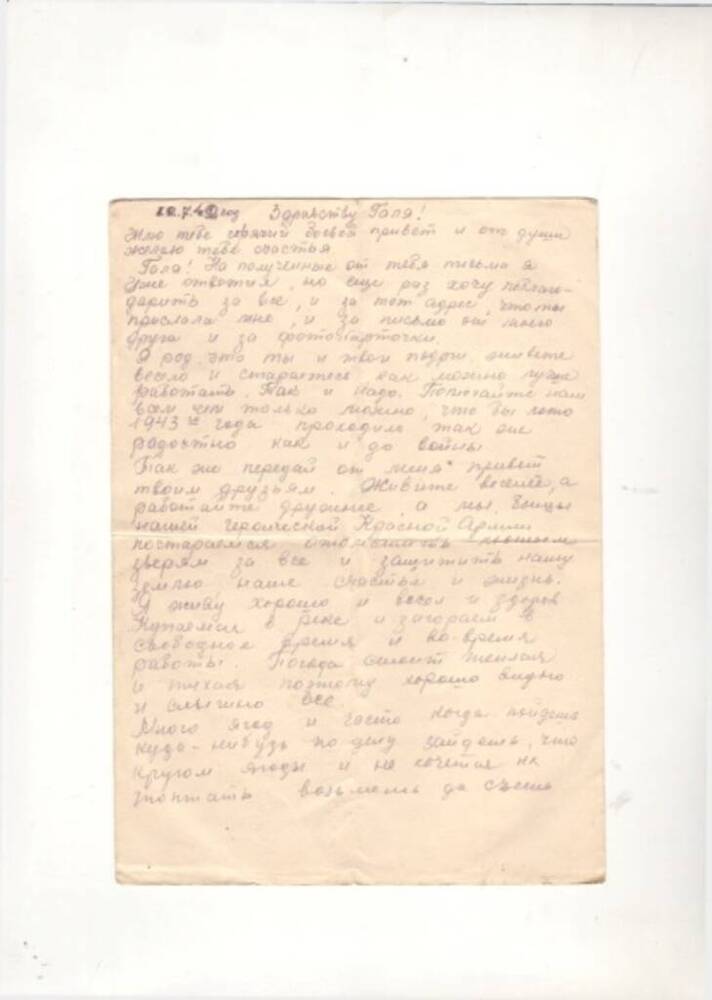 Здравствуй Галя!
Шлю тебе горячий боевой привет и от души
желаю тебе счастья
Галя! На полученные от тебя письма я
уже ответил, но еще раз хочу поблаго-
дарить за все, и за тот адрес, что ты
прислала мне, и за письмо моего
друга и за фотокарточки.
Я рад что ты и твои подруги живете
весело и стараетесь как можно лучше
работать. Так и надо. Помогайте нам
всем чем только можно, что бы лето
1943 года проходило так же
радостно как и до войны.
Так же передай от меня привет
твоим друзьям. Живите веселее, а
работайте дружнее, а мы, бойцы
нашей героической Красной Армии
постараемся отомстить
зверям за все и защитить нашу
землю наше счастье и жизнь.
Я живу хорошо и весел и здоров
Купаемся в реке и загораем в
свободное время и во время
работы. Погода стоит теплая
и тихая поэтому хорошо видно
и слышно все
Много ягод и часто когда пойдешь
куда-нибудь по делу зайдешь, что
кругом ягоды и не хочется их
топтать возьмешь да съешь